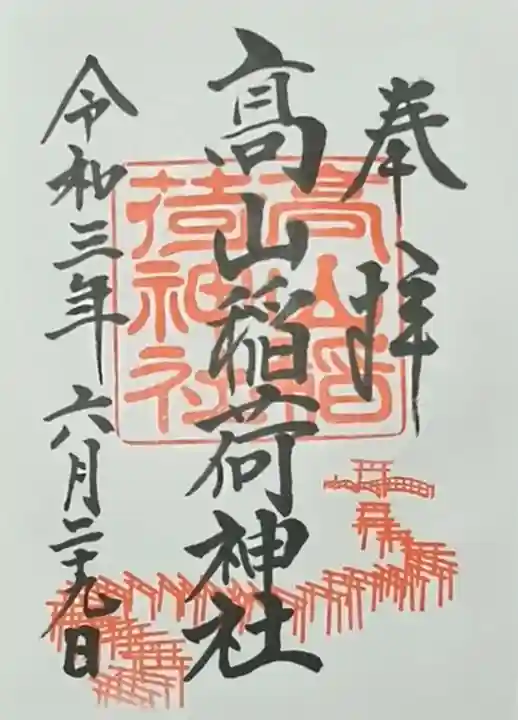 奉拝
髙山稲荷神社
令和三年六月二十九日
高山稲
荷神社